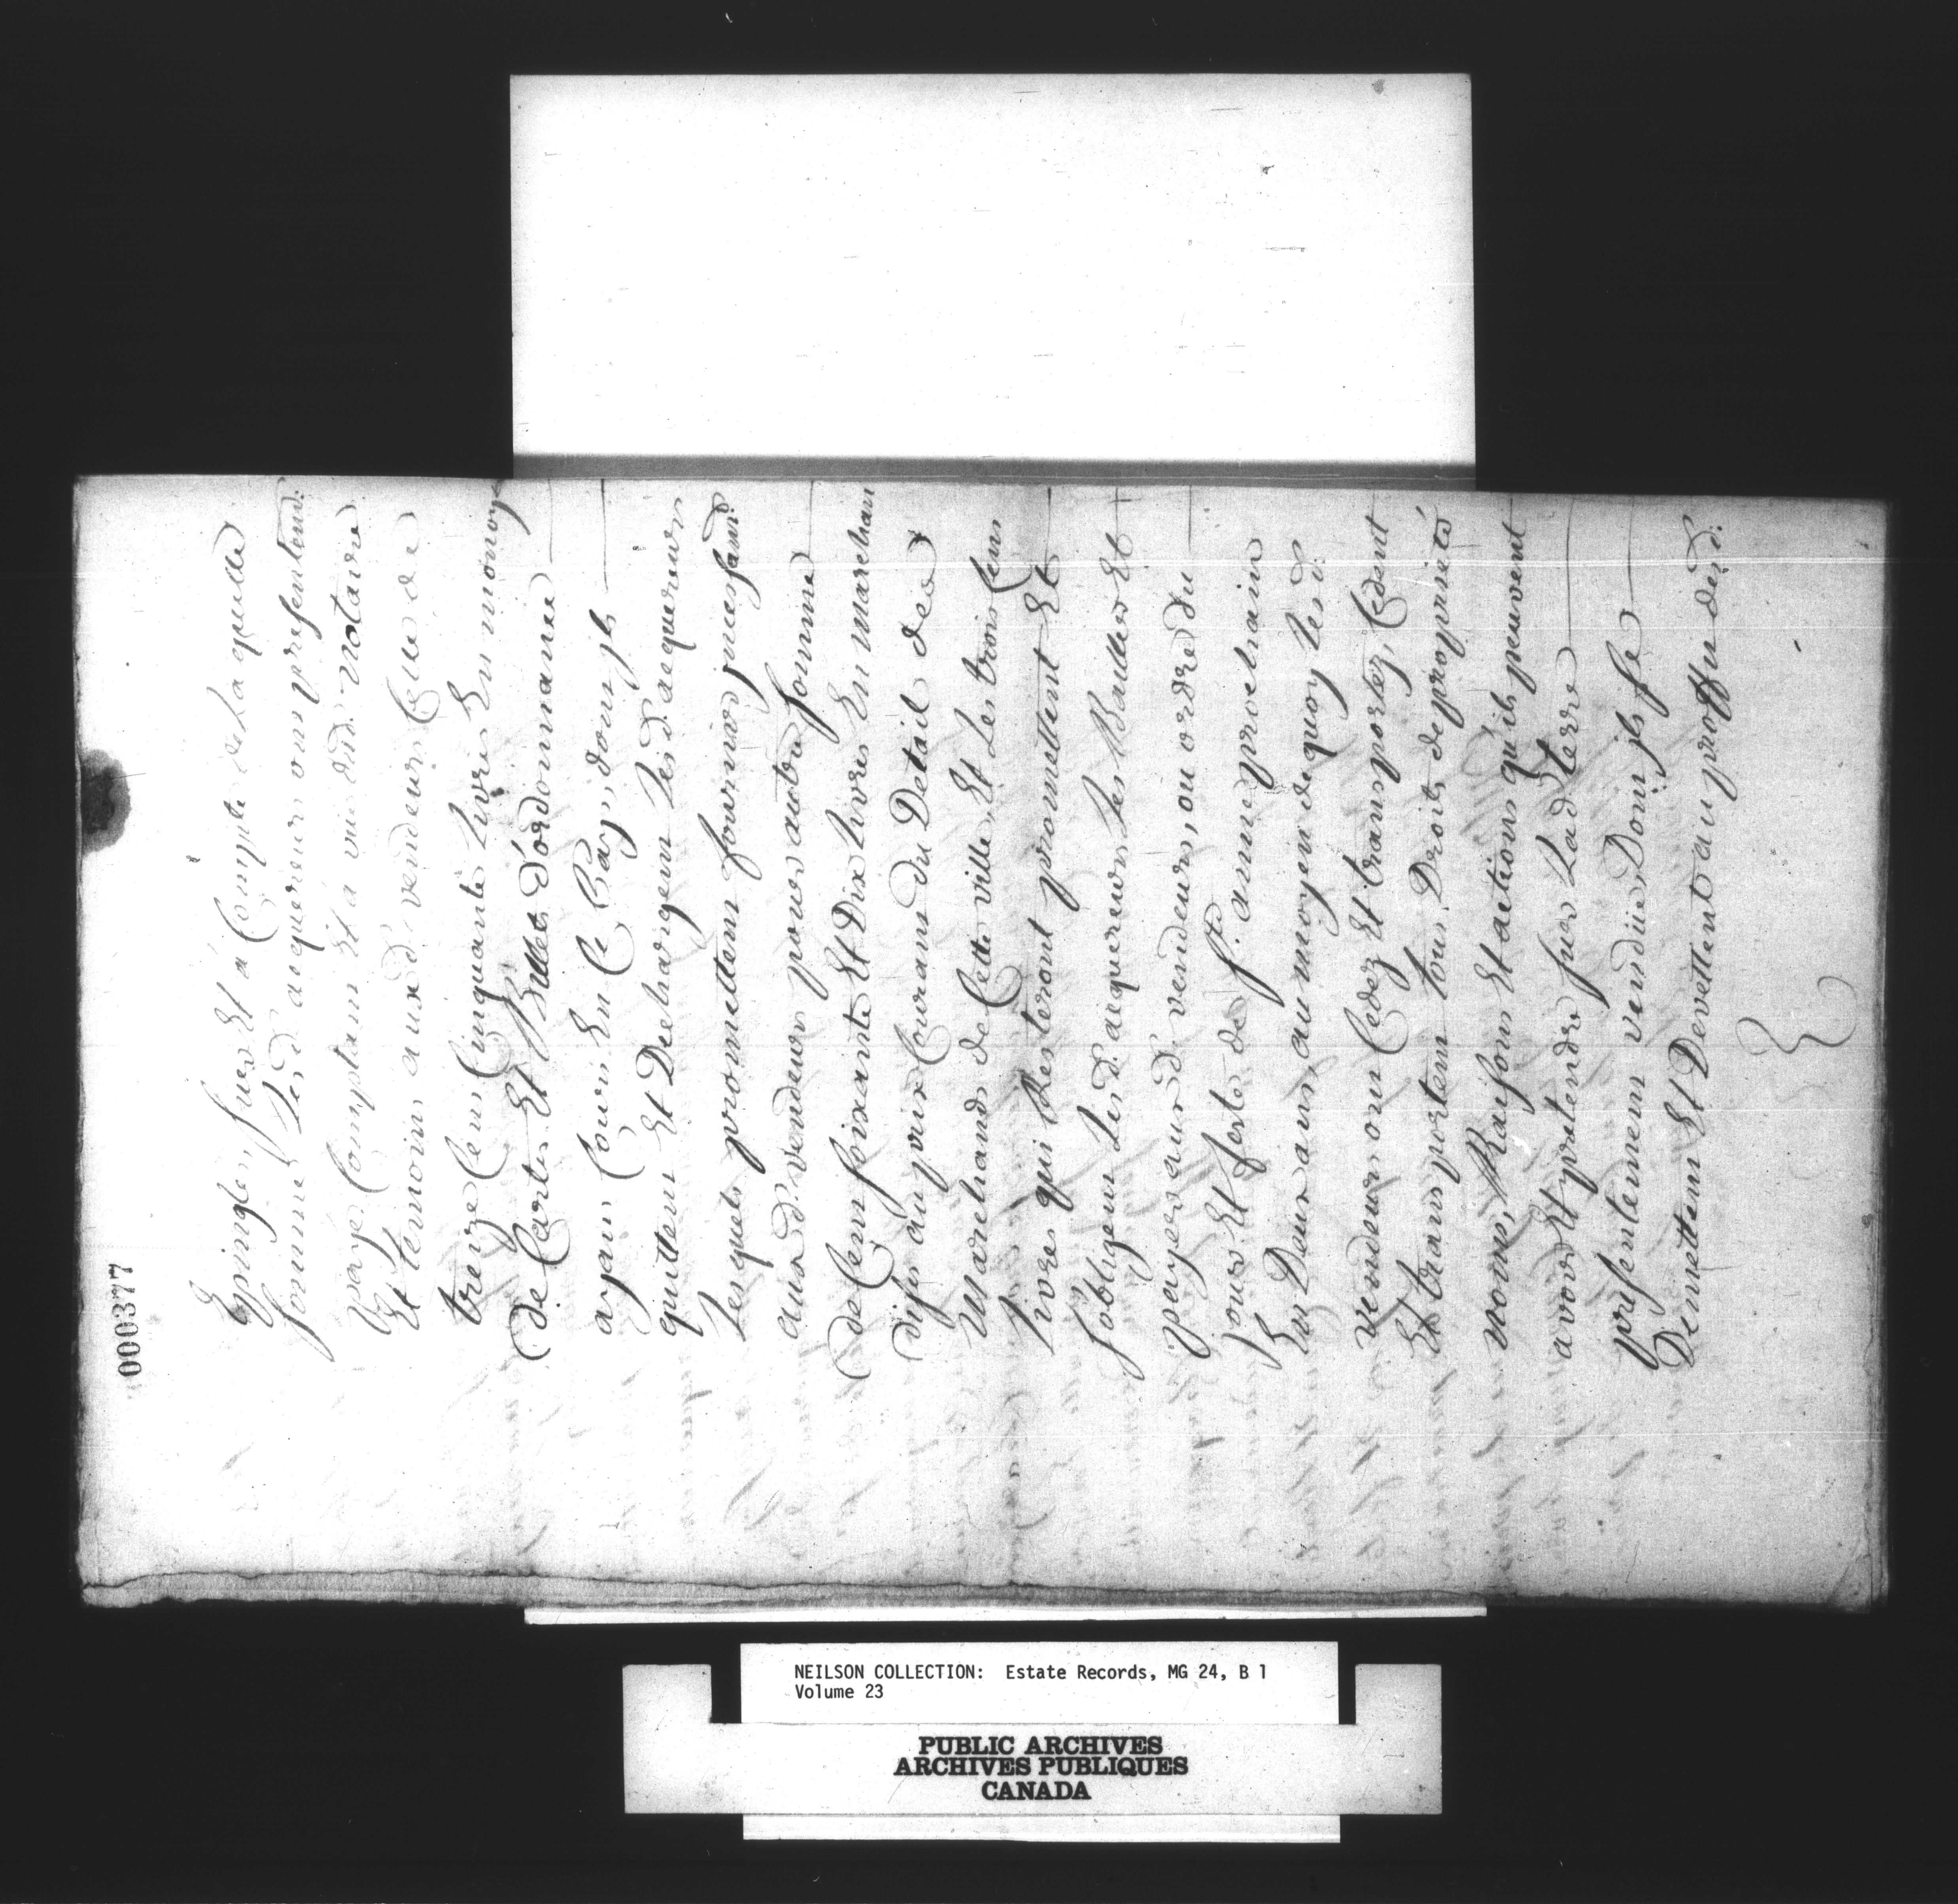 000377
Epingles, sur Et a Compte de La quelle
somme Les d. acquereurs ont presentem.
payé Comptant Et a vue dud. Notaire
Et temoins aux d. vendeurs Celle de
treize Cens Cinquante Livres En monoye
De Cartes Et Billets d'ordonnance
ayans Cours En Ce Pays, dont jls
quittent Et Dechargent Lesd. acquereurs
Lesquels promettent fournir jncessam.
aux d. vendeurs pour autre somme
de Cent soixante Et Dix Livres En marchan
dises au prix Courant du Detail des
Marchands de Cette ville, Et Les trois Cens
Livres qui Resteront promettent Et
sobligent Les d. acquereurs Les Bailler Et
payer aux d. vendeurs, ou ordre du
jour Et feste de St. année prochaine
En Deux ans, au moyen de quoy Les d.
vendeurs ont Cedez Et transportez, Cedent
Et transportent tous Droits de propriété
noms, Raisons Et actions qu'ils peuvent
avoir Et pretendre sur Lad. terre
presentement vendue Dont jls se
Demettent Et Devettent au proffit desd.
NEILSON COLLECTION: Estate Records, MG 24, B 1
Volume 23
PUBLIC ARCHIVES
ARCHIVES PUBLIQUES
CANADA